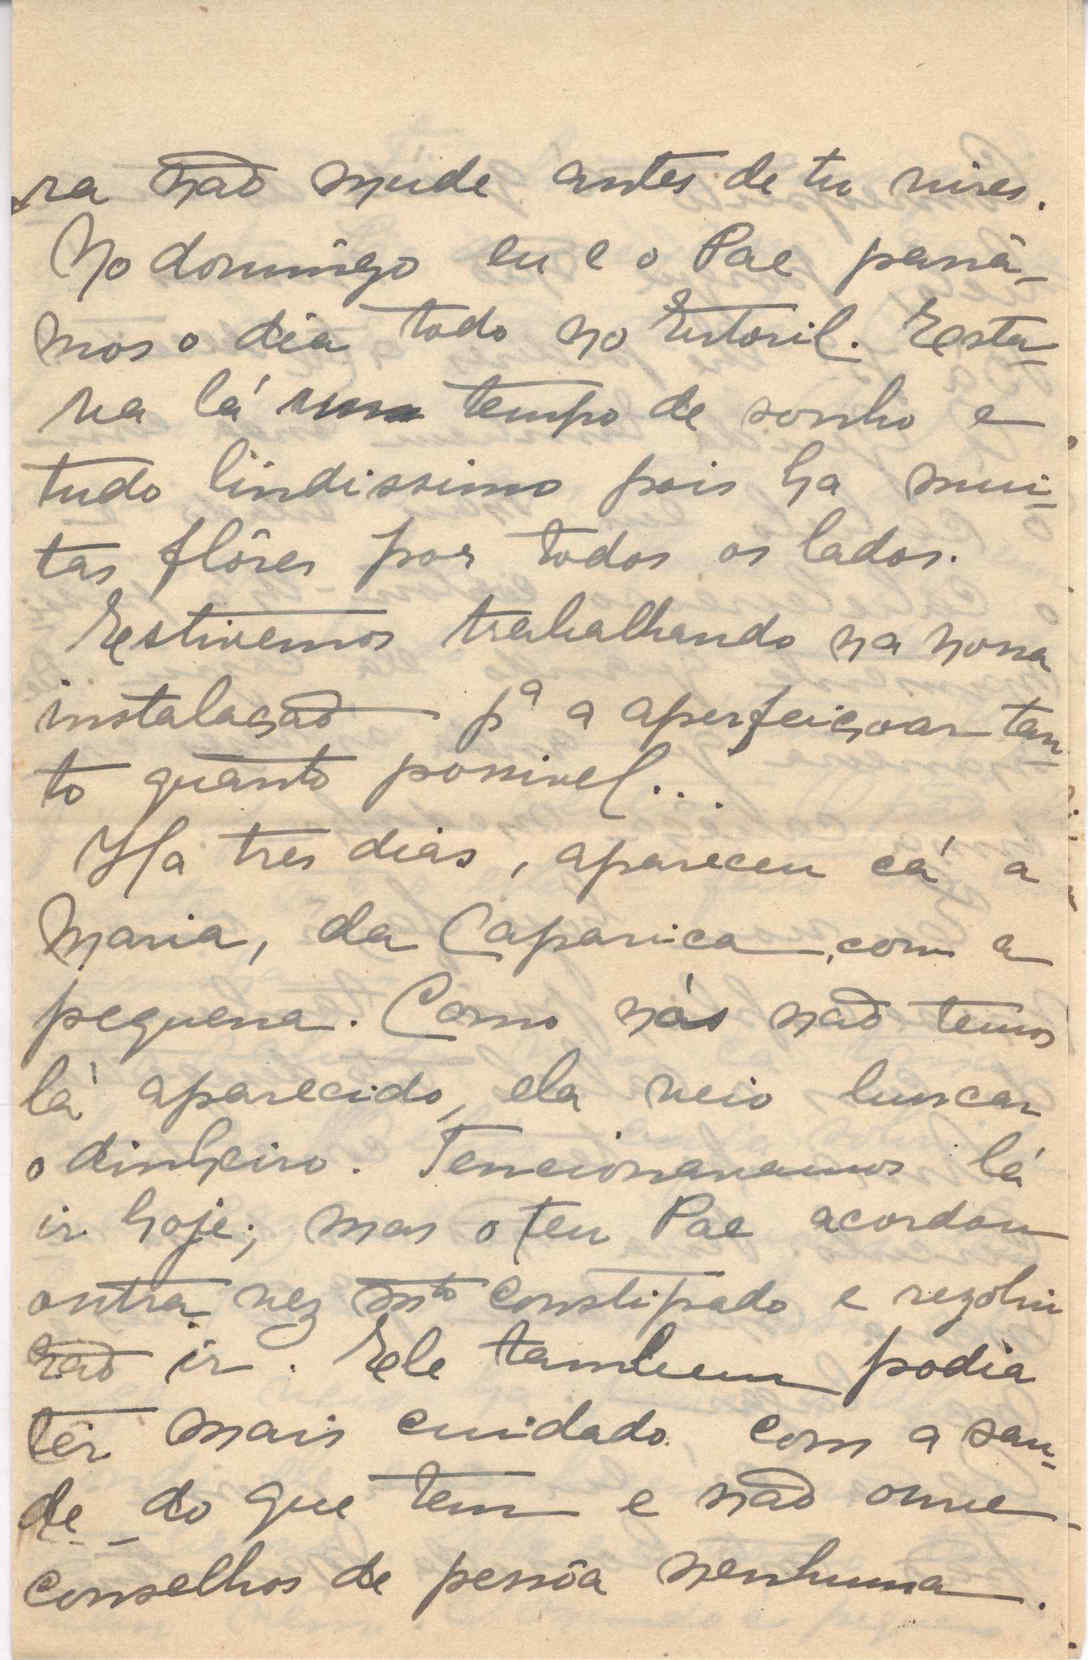 ra não mude antes de tu vires.
No domingo eu e o Pae passá-
mos o dia todo no Estoril. Esta-
va lá um tempo de sonho e
tudo lindissimo pois ha mui-
tas flôres por todos os lados.
Estivemos trabalhando na nossa
instalação pª a aperfeiçoar tan-
to quanto possivel...
Ha tres dias, apareceu cá a
Maria, da Caparica, com a
pequena. Como nós não temos
lá aparecido, ela veio buscar
o dinheiro. Tencionavamos lá
ir hoje; mas o teu Pae acordou
outra vez mto constipado e rezolvi
não ir. Ele tambem podia
têr mais cuidado com a sau-
de do que tem e não ouve
conselhos de pessôa nenhuma.